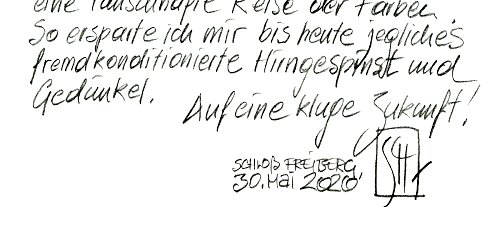 eine rauschhafte Reise der Farben.
So ersparte ich mir bis heute jegliches
fremdkonditionierte Hirngespinst und
Gedünkel.
Auf eine kluge Zukunft!
SCHLOß FREIBERG,
30. Mai 2020